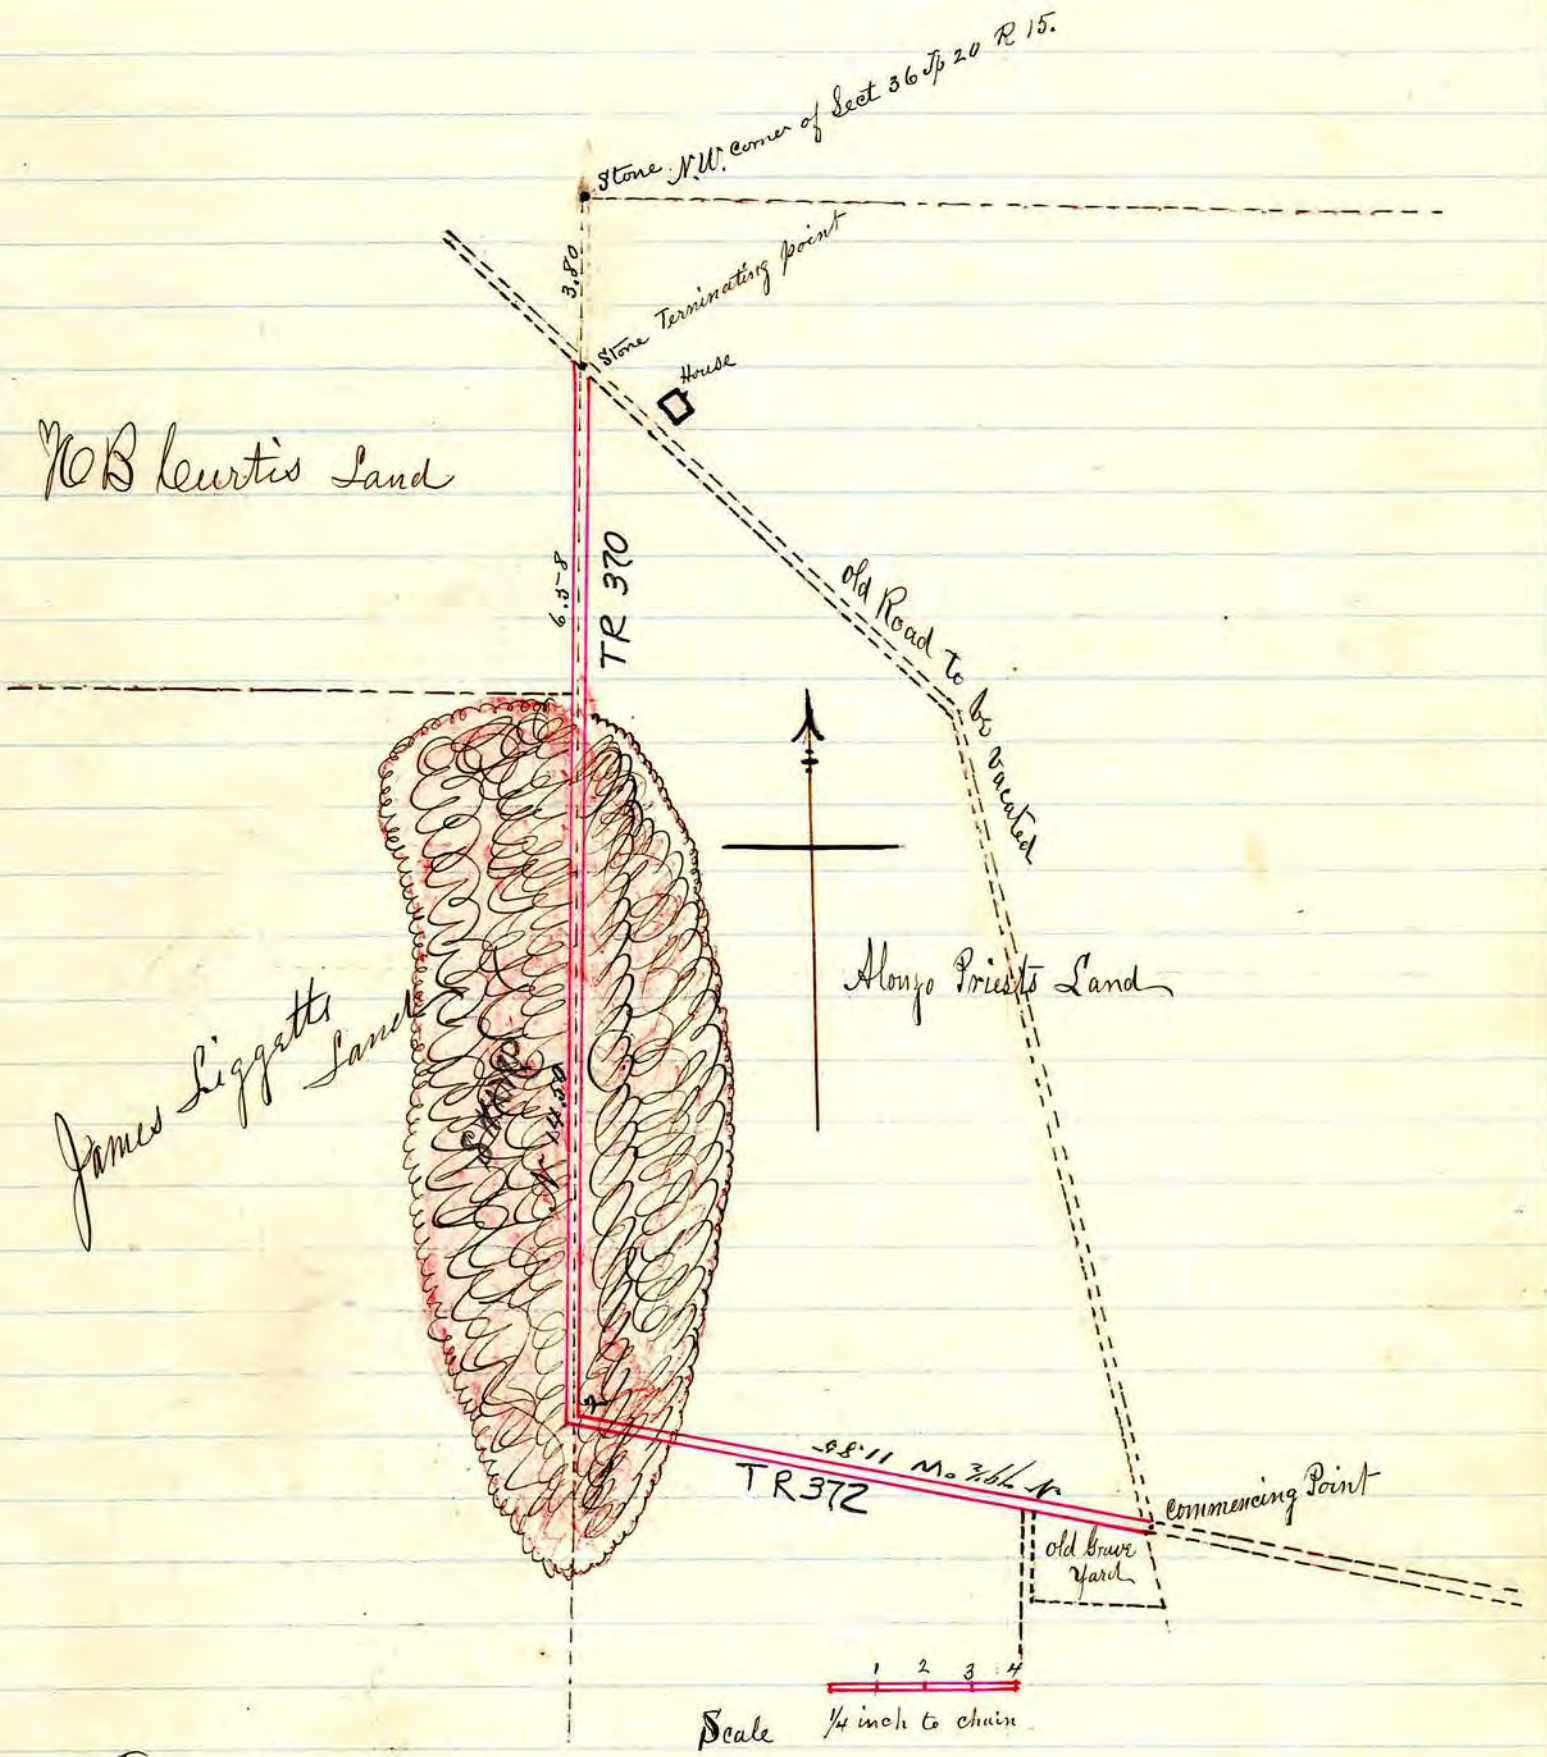 Stone N.W. Corner of Sect 36 Tp 20 R 15.
3.80
Stone Terninating point
House
Curtis Land
6.58
TR 370
old Road to be vacated
Alonzo Priests Land
James Liggetts
Land
N 14.50
2
N 77 1/2° W 11.85
TR 372
Commencing Point
old Grave
Yard
1 2 3 4
Scale 1/4 inch to chain